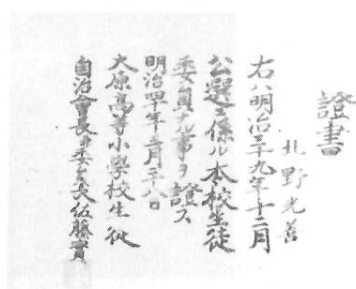 證書
北野光善
右ハ明治三十九年十二月
公選ニ係ル本校生徒
委員ナル事ヲ證ス
明治四十年三月二十八日
大原高等小學校生徒
自治會長兼委員長佐藤實